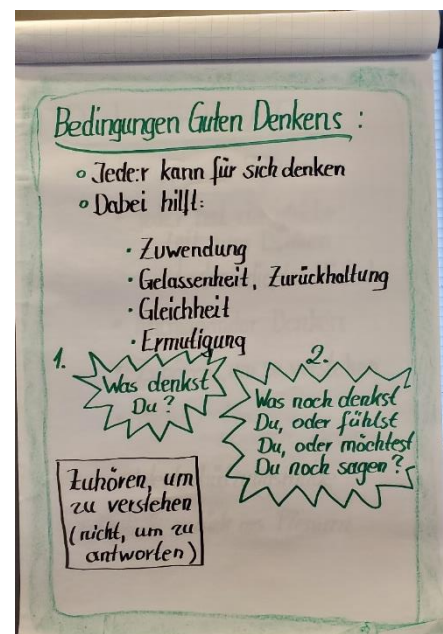 Bedingungen Guten Denkens :
o Jede:r kann für sich denken
o Dabei hilft:
· Zuwendung
· Gelassenheit, Zurückhaltung
· Gleichheit
· Ermutigung
1.
Was denkst
Du ?
2.
Was noch denkst
Du, oder fühlst
Du, oder möchtest
Du noch sagen ?
Zuhören, um
zu verstehen
(nicht, um zu
antworten)